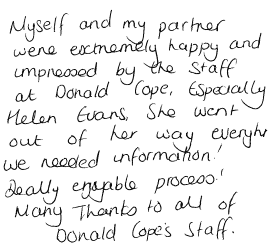 Myself and my partner
were exctremely happy and
impressed by the Staff
at Donald Cope, Especially
Helen Evans, She went
out of her way everyhe
we needed information!
Really enjoyable process!
Many Thanks to all of
Donald Cope's Staff.